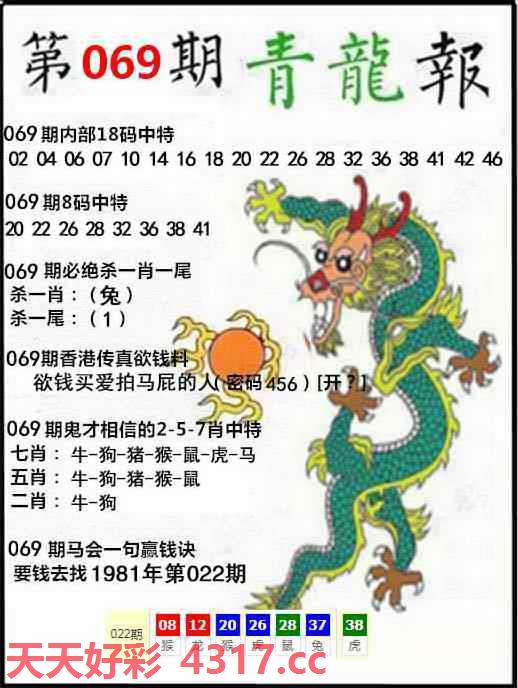 第069期青龍報
069期内部18码中特
02 04 06 07 10 14 16 18 20 22 26 28 32 36 38 41 42 46
069期8码中特
20 22 26 28 32 36 38 41
069 期必绝杀一肖一尾
杀一肖：（兔）
杀一尾：（1）
069期香港传真欲钱料
欲钱买爱拍马屁的人(密码456）[开？]
069期鬼才相信的2-5-7肖中特
七肖：牛-狗-猪-猴-鼠-虎-马
五肖：牛-狗-猪-猴-鼠
二肖：牛-狗
069 期马会一句赢钱诀
要钱去找1981年第022期
022期 08 12 20 26 28 37 38
猴 龙 猴 虎 鼠 兔 虎
天天好彩 4317.cc